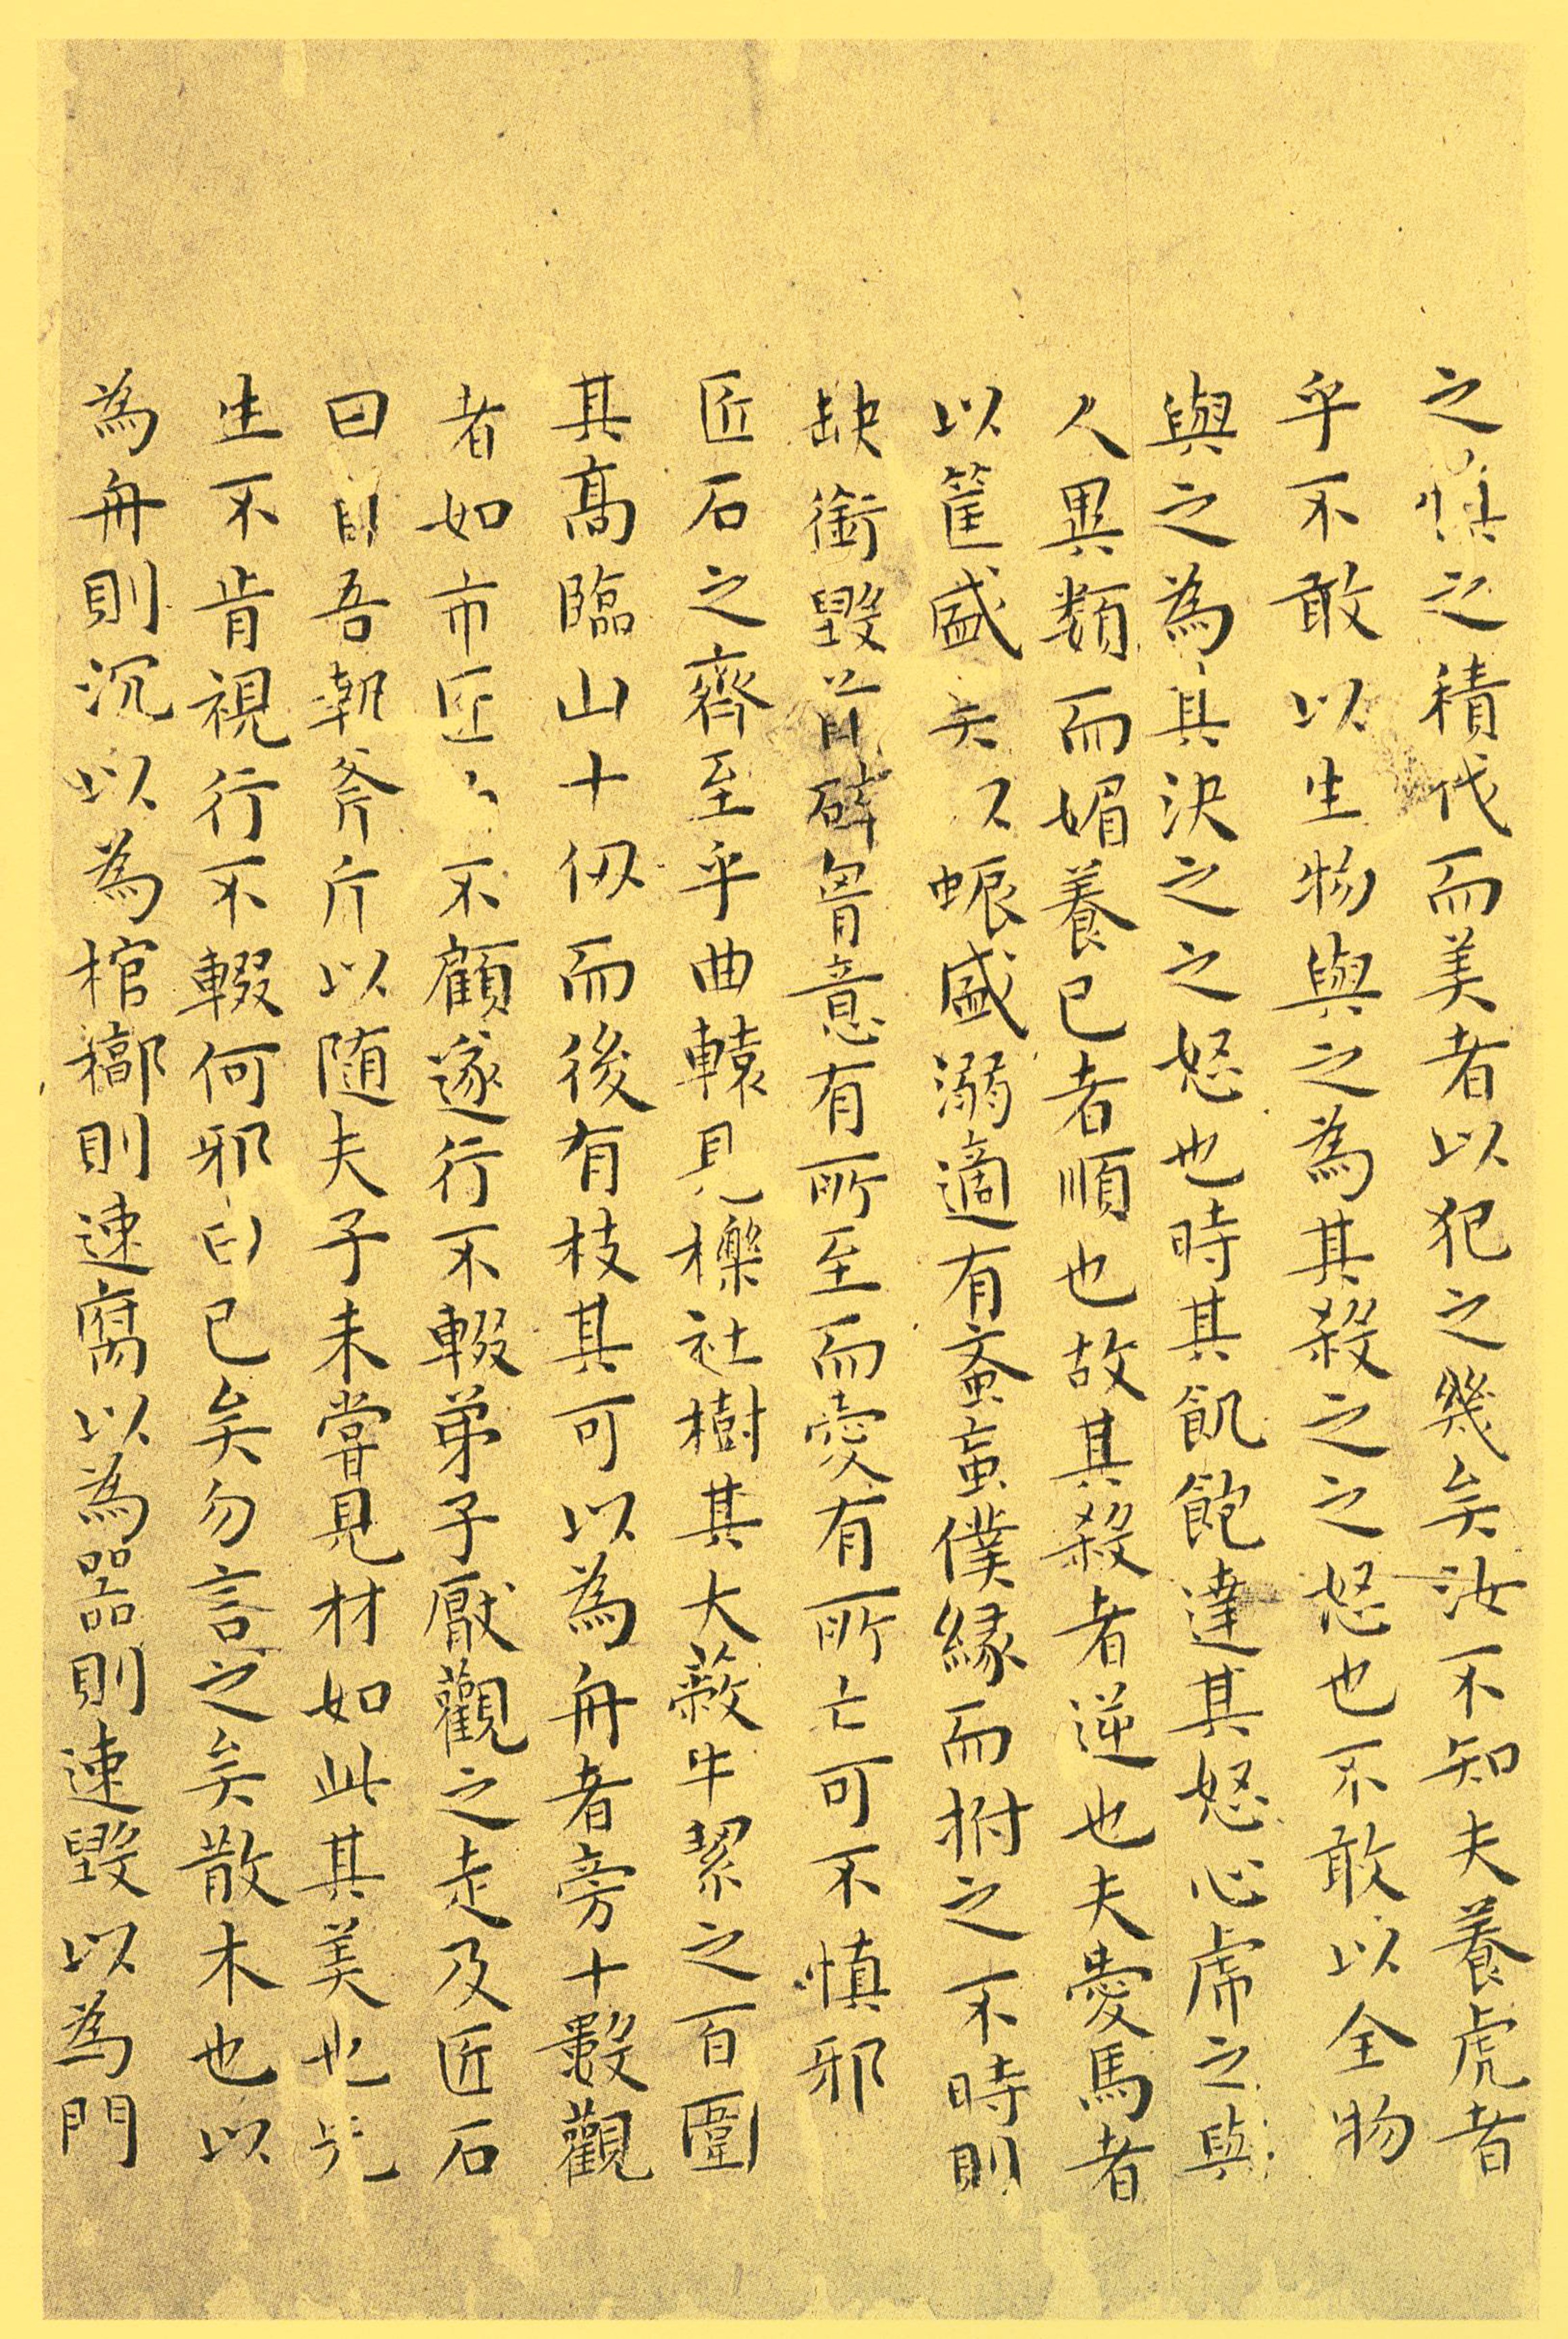 之慎之積伐而美者以犯之幾矣汝不知夫養虎者
乎不敢以生物與之為其殺之之怒也不敢以全物
與之為其決之之怒也時其飢飽達其怒心虎之與
人異類而媚養已者順也故其殺者逆也夫愛馬者
以筐盛矢以蜄盛溺適有蚉虻僕緣而拊之不時則
缺銜毀首碎胷意有所至而愛有所亡可不慎邪
匠石之齊至乎曲轅見櫟社樹其大蔽牛絜之百圍
其高臨山十仞而後有枝其可以為舟者旁十數觀
者如市匠不顧遂行不輟弟子厭觀之走及匠石
曰自吾執斧斤以随夫子未嘗見材如此其美也先
生不肯視行不輟何邪曰已矣勿言之矣散木也以
為舟則沉以為棺槨則速腐以為器則速毀以為門